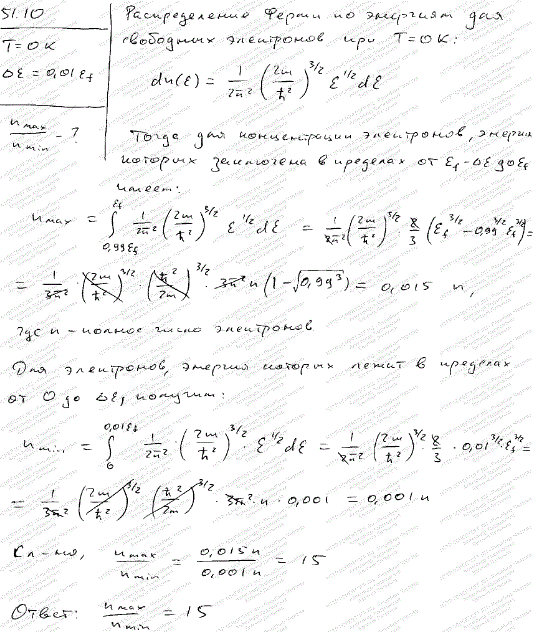 51.10
T = 0 K
Δε = 0,01 ε_f
n_max / n_min - ?
Распределение Ферми по энергиям для
свободных электронов при T = 0 K:
dn(ε) = 1/(2π²) (2m/ħ²)^(3/2) ε^(1/2) dε
Тогда для концентрации электронов, энергия
которых заключена в пределах от ε_f - Δε до ε_f
имеем:
n_max = ∫_(0,99ε_f)^(ε_f) 1/(2π²) (2m/ħ²)^(3/2) ε^(1/2) dε = 1/(2π²) (2m/ħ²)^(3/2) 2/3 (ε_f^(3/2) - 0,99^(3/2) ε_f^(3/2)) =
= 1/(3π²) · (2m/ħ²)^(3/2) · (ħ²/2m)^(3/2) · 3π² n (1 - √(0,99³)) = 0,015 n,
где n - полное число электронов
Для электронов, энергия которых лежит в пределах
от 0 до Δε, получим:
n_min = ∫_0^(0,01ε_f) 1/(2π²) · (2m/ħ²)^(3/2) · ε^(1/2) dε = 1/(2π²) (2m/ħ²)^(3/2) · 2/3 · 0,01^(3/2) · ε_f^(3/2) =
= 1/(3π²) (2m/ħ²)^(3/2) (ħ²/2m)^(3/2) · 3π² · n · 0,001 = 0,001 n
Сл-но, n_max / n_min = 0,015n / 0,001n = 15
Ответ: n_max / n_min = 15